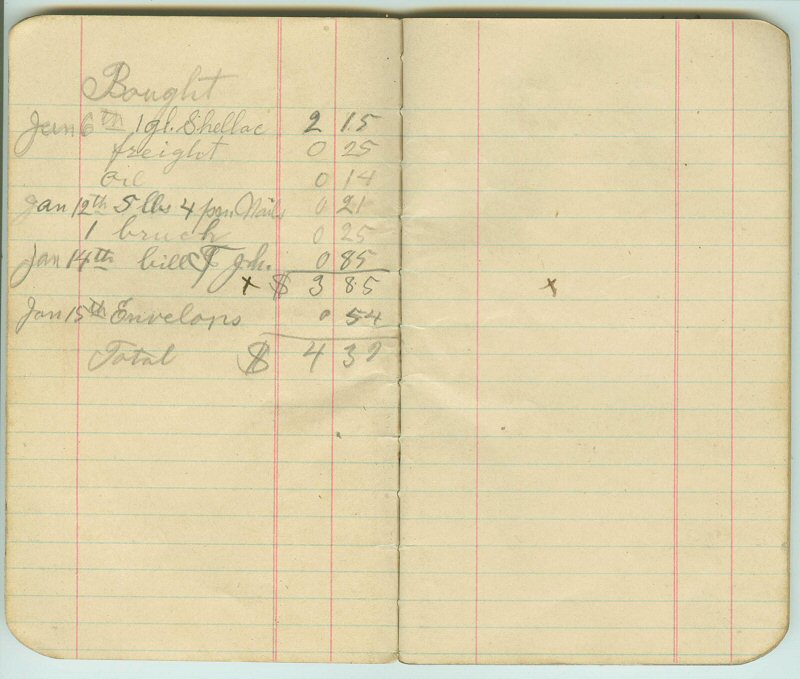 Bought
Jan 6th 1 gl. Shellac 2 15
freight 0 25
oil 0 14
Jan 12th 5 lbs 4 pen. Nails 0 21
1 brush 0 25
Jan 14th bill 0 85
x $ 3 85 x
Jan 15th Envelops 0 54
Total $ 4 39